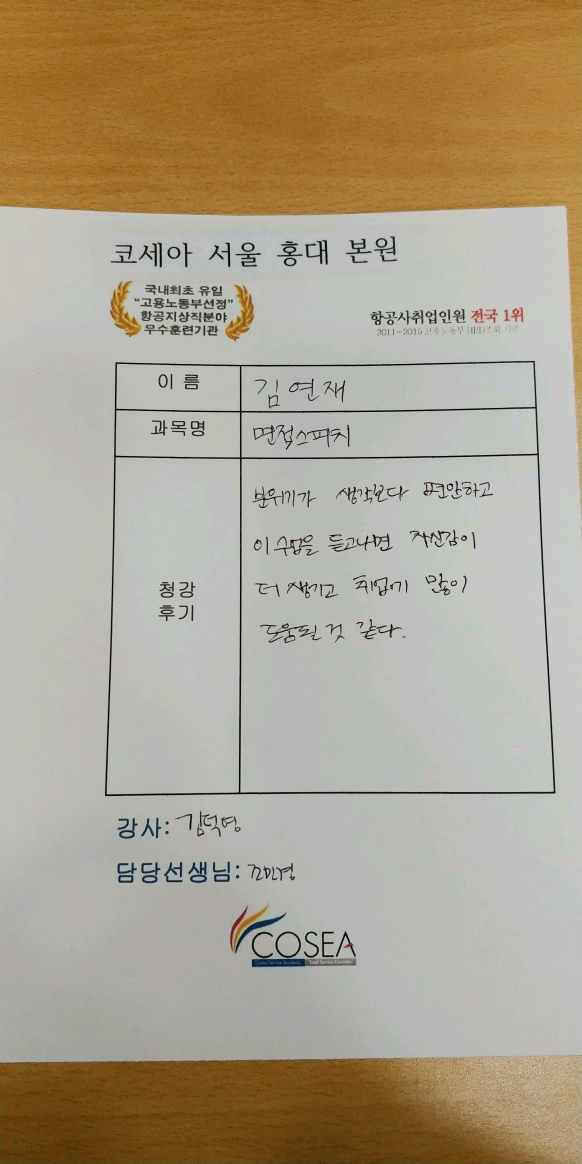 코세아 서울 홍대 본원
국내최초 유일
“고용노동부선정”
항공지상직분야
우수훈련기관
항공사취업인원 전국 1위
2011~2015 고용노동부 HRD조회 기준
이 름
김연재
과목명
면접스피치
청강
후기
분위기가 생각보다 편안하고
이 수업을 듣고나면 자신감이
더 생기고 취업에 많이
도움될 것 같다.
강사: 김덕영
담당선생님:
COSEA
Korea Service Academy